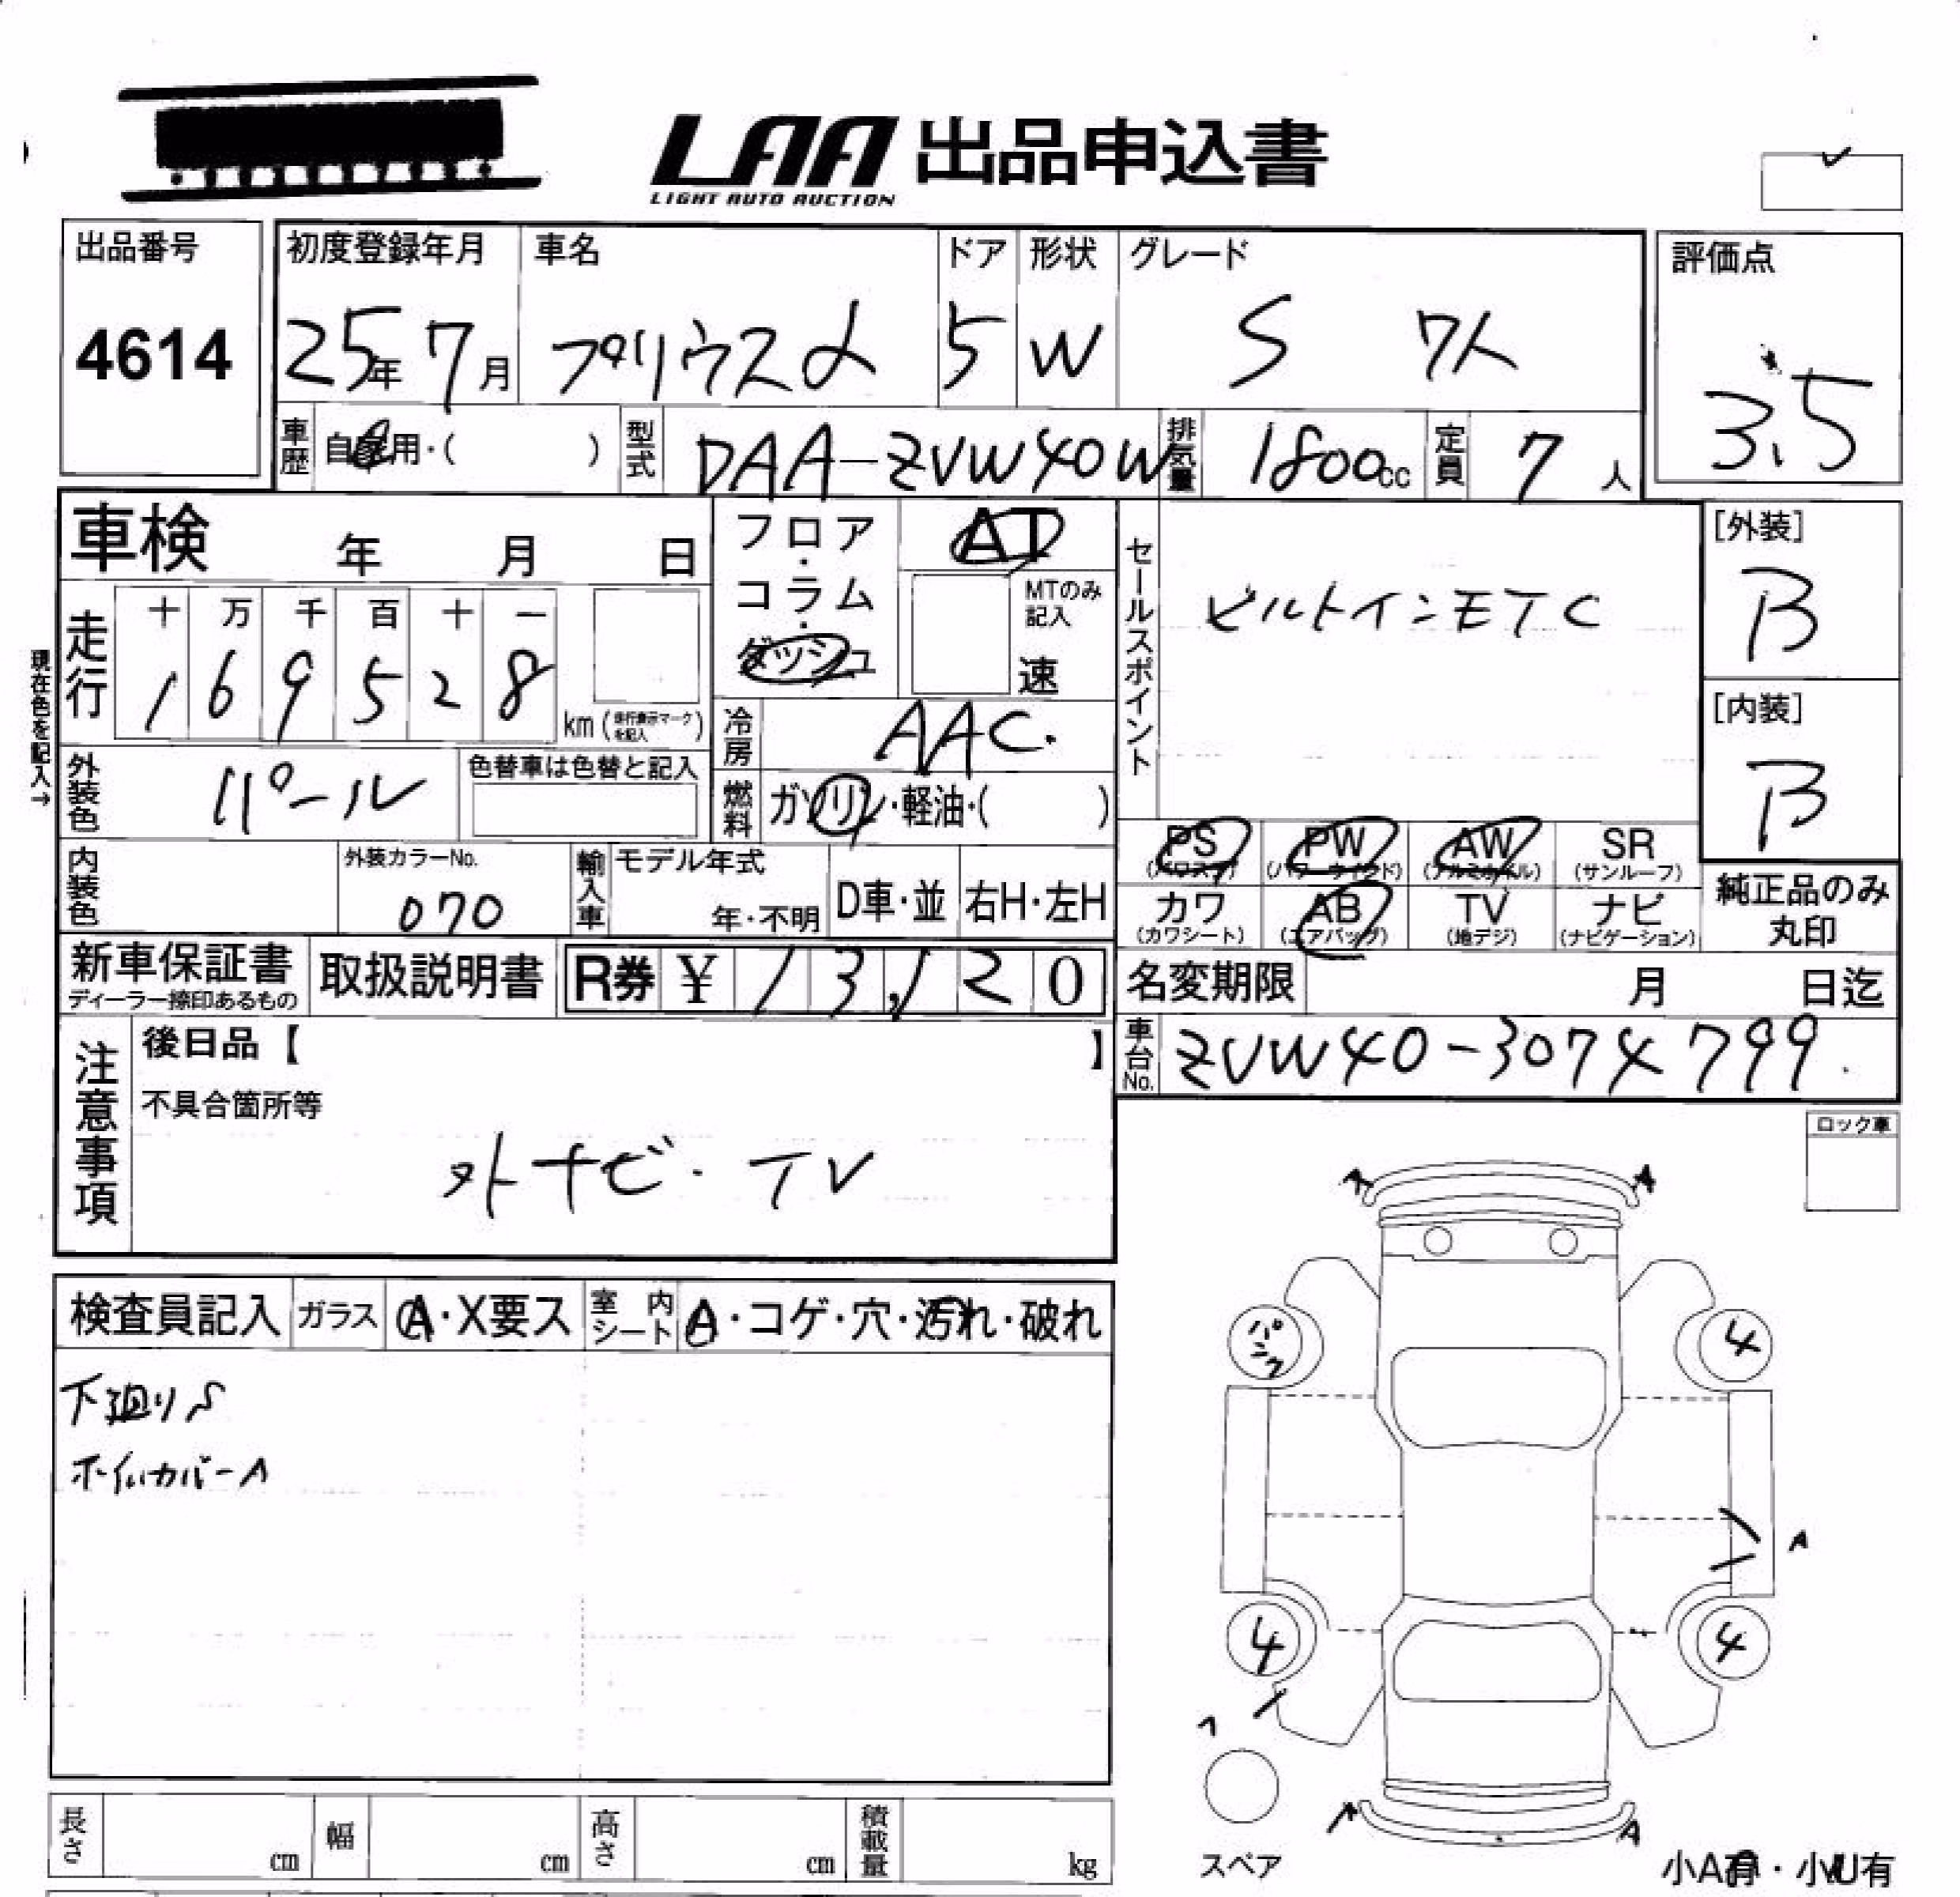 LAA 出品申込書
LIGHT AUTO AUCTION
出品番号 初度登録年月 車名 ドア 形状 グレード 評価点
4614 25年 7月 プリウスα 5 W S 7人 3.5
車歴 自家用・( ) 型式 DAA-ZVW40W 排気量 1800cc 定員 7人
車検 年 月 日
フロア・コラム・ダッシュ
AT
MTのみ記入
速
セールスポイント
ビルトインETC
[外装]
B
[内装]
B
現在色を記入→
走行 十 万 千 百 十 一
1 6 9 5 2 8 km (走行表示マークを記入)
冷房 AAC.
外装色 パール 色替車は色替と記入
燃料 ガソリン・軽油・( )
PS PW AW SR
(パワステ) (パワーウインド) (アルミホイル) (サンルーフ)
カワ AB TV ナビ
(カワシート) (エアバッグ) (地デジ) (ナビゲーション)
純正品のみ
丸印
内装色 外装カラーNo. 070 輸入車 モデル年式 年・不明 D車・並 右H・左H
新車保証書 取扱説明書 R券 ¥ 13,120
ディーラー捺印あるもの
名変期限 月 日迄
車台No. ZVW40-3074799
注意事項
後日品【 】
不具合箇所等
外ナビ・TV
ロック車
検査員記入 ガラス A・X要ス 室内シート A・コゲ・穴・汚れ・破れ
下廻りS
ホイルカバーA
A A
パンク 4
A
4 4
A A
スペア
小A有・小U有
長さ cm 幅 cm 高さ cm 積載量 kg